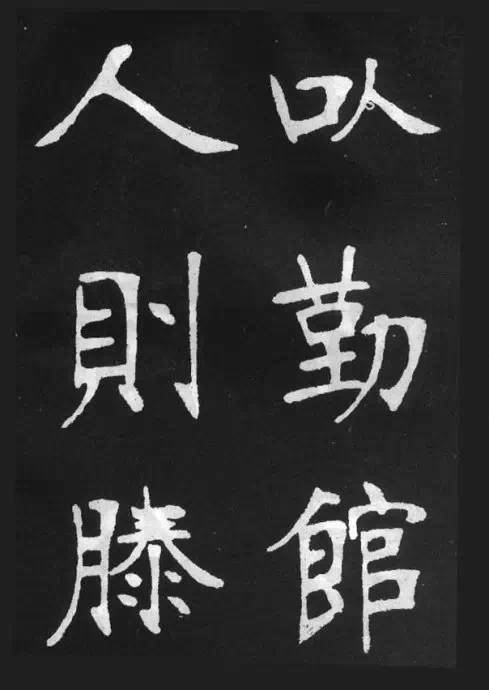 以勤館
人則滕